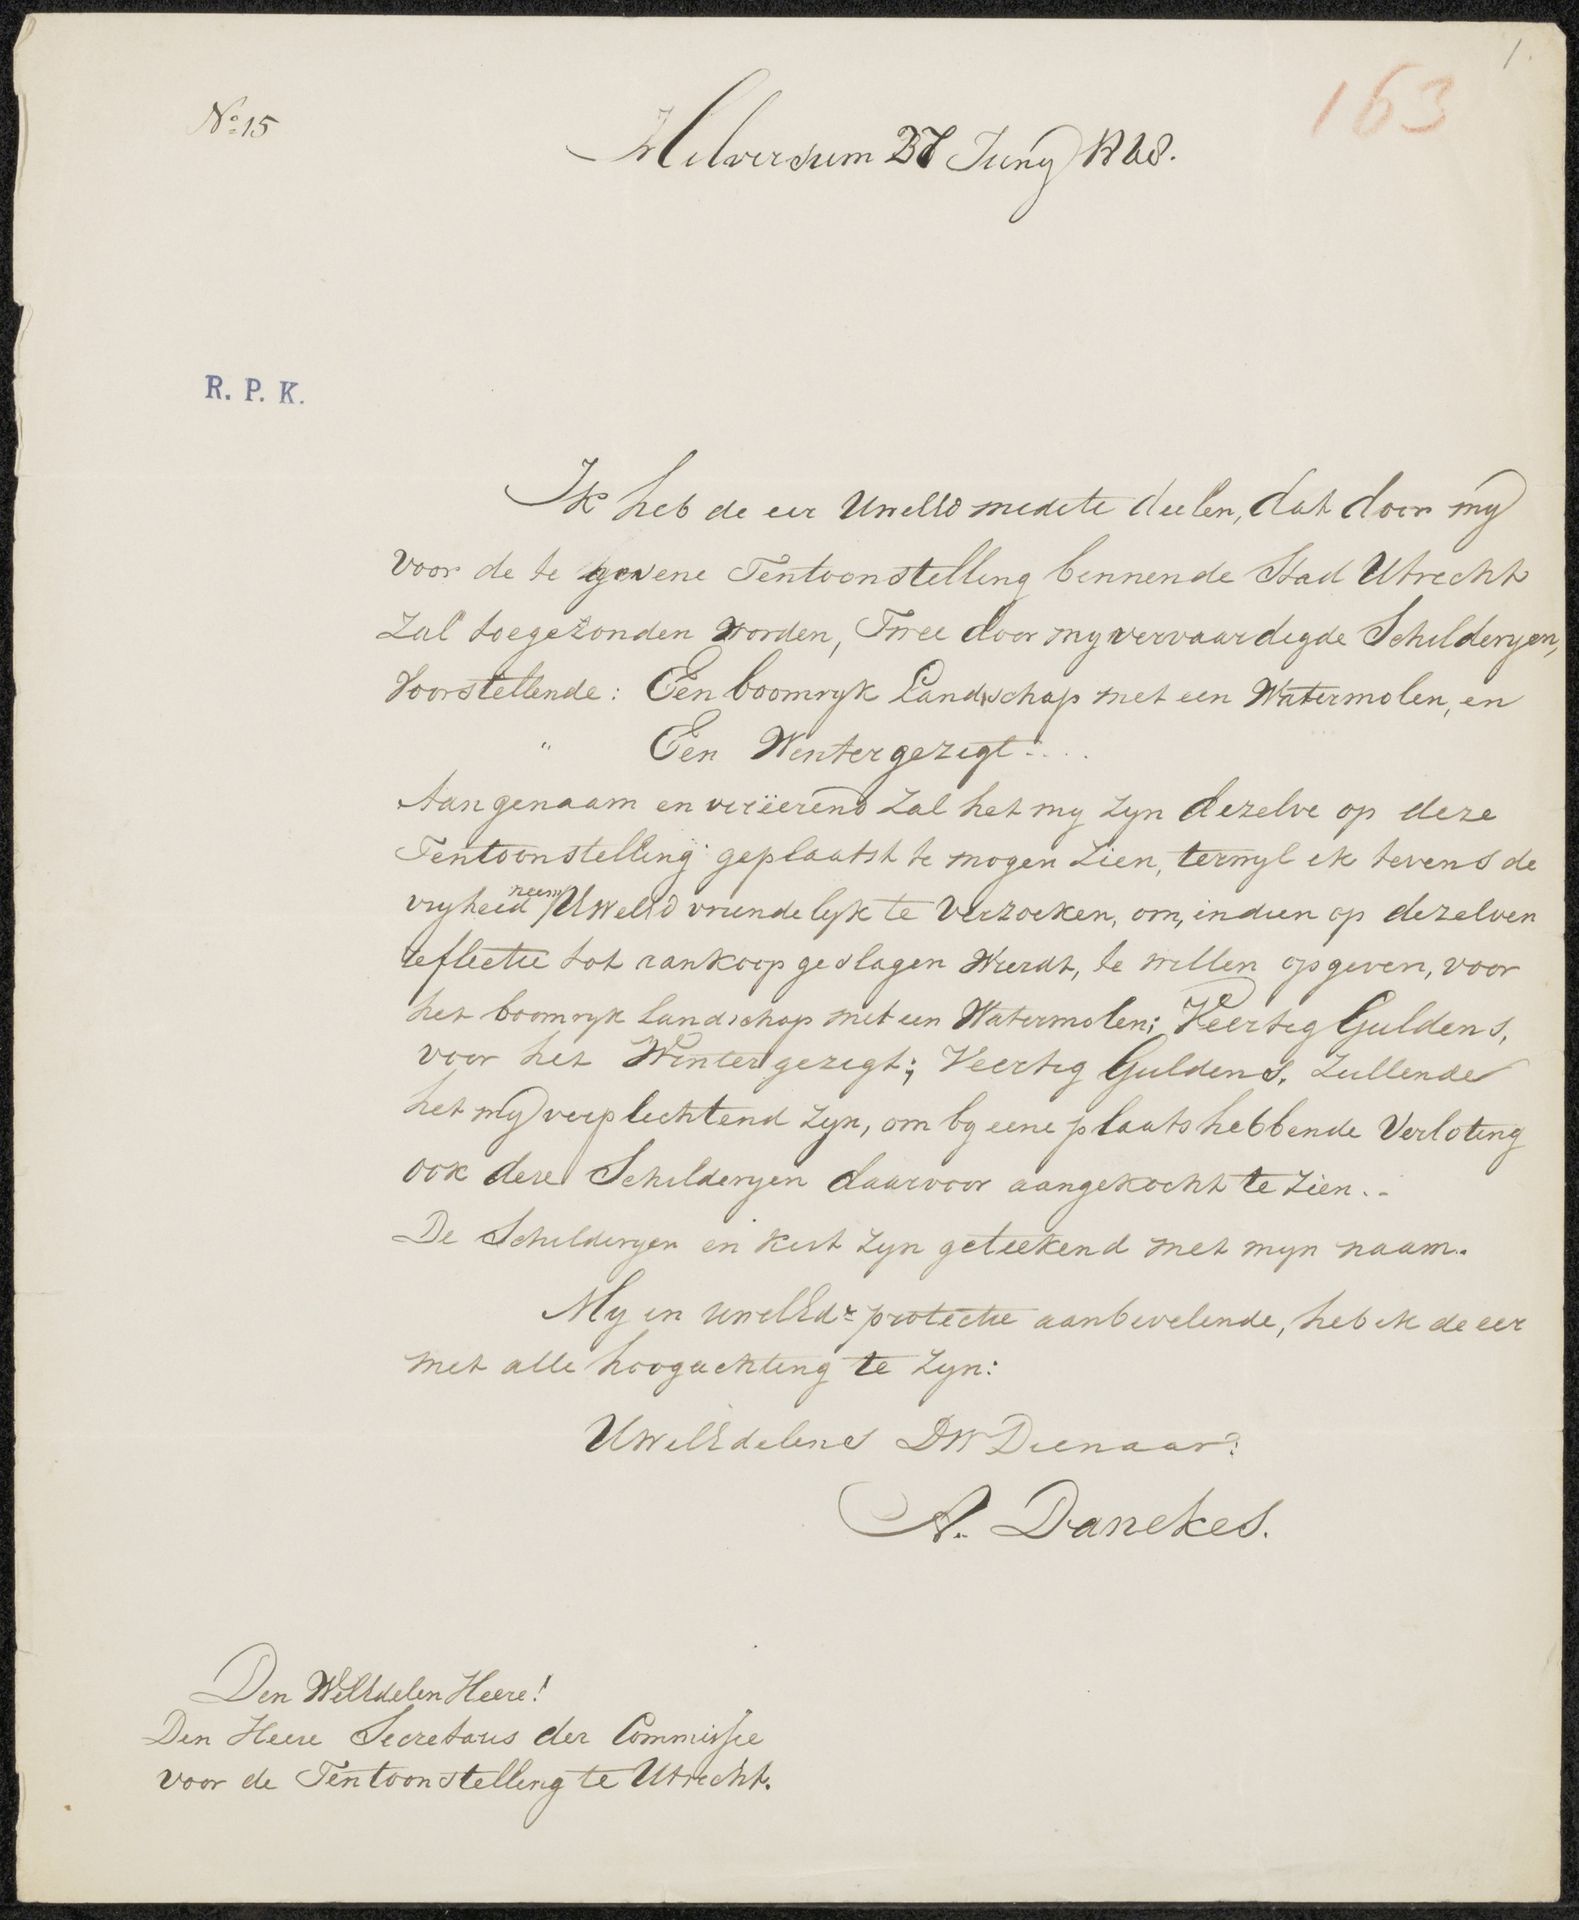 1.
163
No. 15
Hilversum 27 Juny 1868.
R. P. K.
Ik heb de eer UwelEd medete deelen, dat door my
voor de te gevene Tentoonstelling binnende Stad Utrecht
zal toegezonden worden, Twee door my vervaardigde Schilderyen,
Voorstellende : Een boomryk Landschap met een Watermolen, en
" Een Wintergezigt....
Aangenaam en vereerend zal het my zyn dezelve op deze
Tentoonstelling geplaatst te mogen zien, terwyl ik tevens de
vryheid neem UwelEd vriendelyk te verzoeken, om, indien op dezelven
reflectie tot aankoop geslagen wierdt, te willen opgeven, voor
het boomryk landschap met een Watermolen; Veertig Guldens,
voor het Wintergezigt; Veertig Guldens. zullende
het my verplichtend zyn, om by eene plaatshebbende Verloting
ook deze Schilderyen daarvoor aangekocht te zien..
De Schilderyen en kist zyn geteekend met myn naam.
My in UwelEdr protectie aanbevelende, heb ik de eer
met alle hoogachting te zyn:
UwelEdelens DW Dienaar:
A. Danekes.
Den WelEdelen Heere!
Den Heere Secretaris der Commissie
voor de Tentoonstelling te Utrecht.